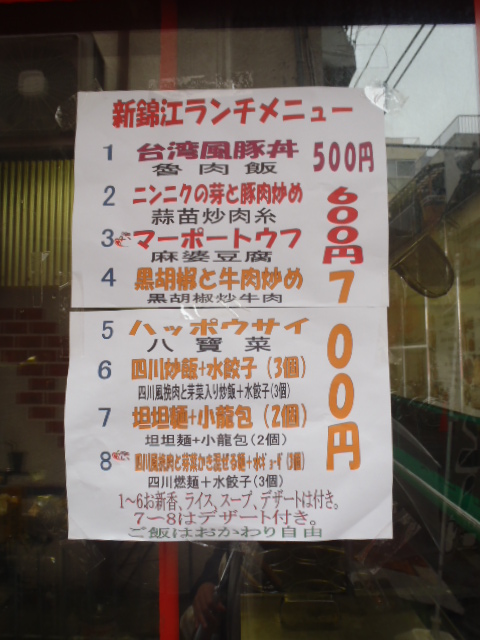 新錦江ランチメニュー
1 台湾風豚丼 500円
魯肉飯
2 ニンニクの芽と豚肉炒め
蒜苗炒肉糸
600円
3 マーボートウフ
麻婆豆腐
4 黒胡椒と牛肉炒め
黒胡椒炒牛肉
700円
5 ハッポウサイ
八寶菜
6 四川炒飯+水餃子(3個)
四川風挽肉と芽菜入り炒飯+水餃子(3個)
7 坦坦麺+小龍包(2個)
坦坦麺+小龍包(2個)
8 四川風挽肉と芽菜かき混ぜる麺+水ギョーザ(3個)
四川燃麺+水餃子(3個)
1~6お新香、ライス、スープ、デザートは付き。
7~8はデザート付き。
ご飯はおかわり自由